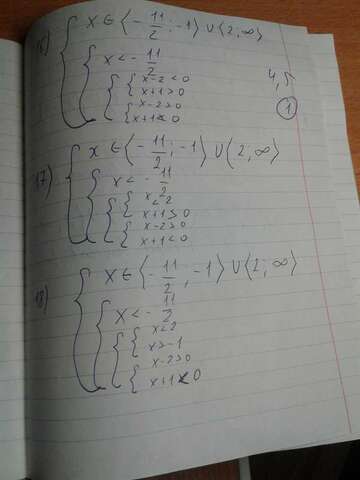 16) { x ∈ (-11/2; -1) ∪ (2, ∞)
{ x < -11/2
{ { x-2 < 0
x+1 > 0
{ x-2 > 0
x+1 < 0
4,5
1
17) { x ∈ (-11/2; -1) ∪ (2, ∞)
{ x < -11/2
{ { x < 2
x+1 > 0
{ x-2 > 0
x+1 < 0
18) { x ∈ (-11/2, -1) ∪ (2; ∞)
{ x < -11/2
{ { x < 2
x > -1
{ x-2 > 0
x+1 < 0